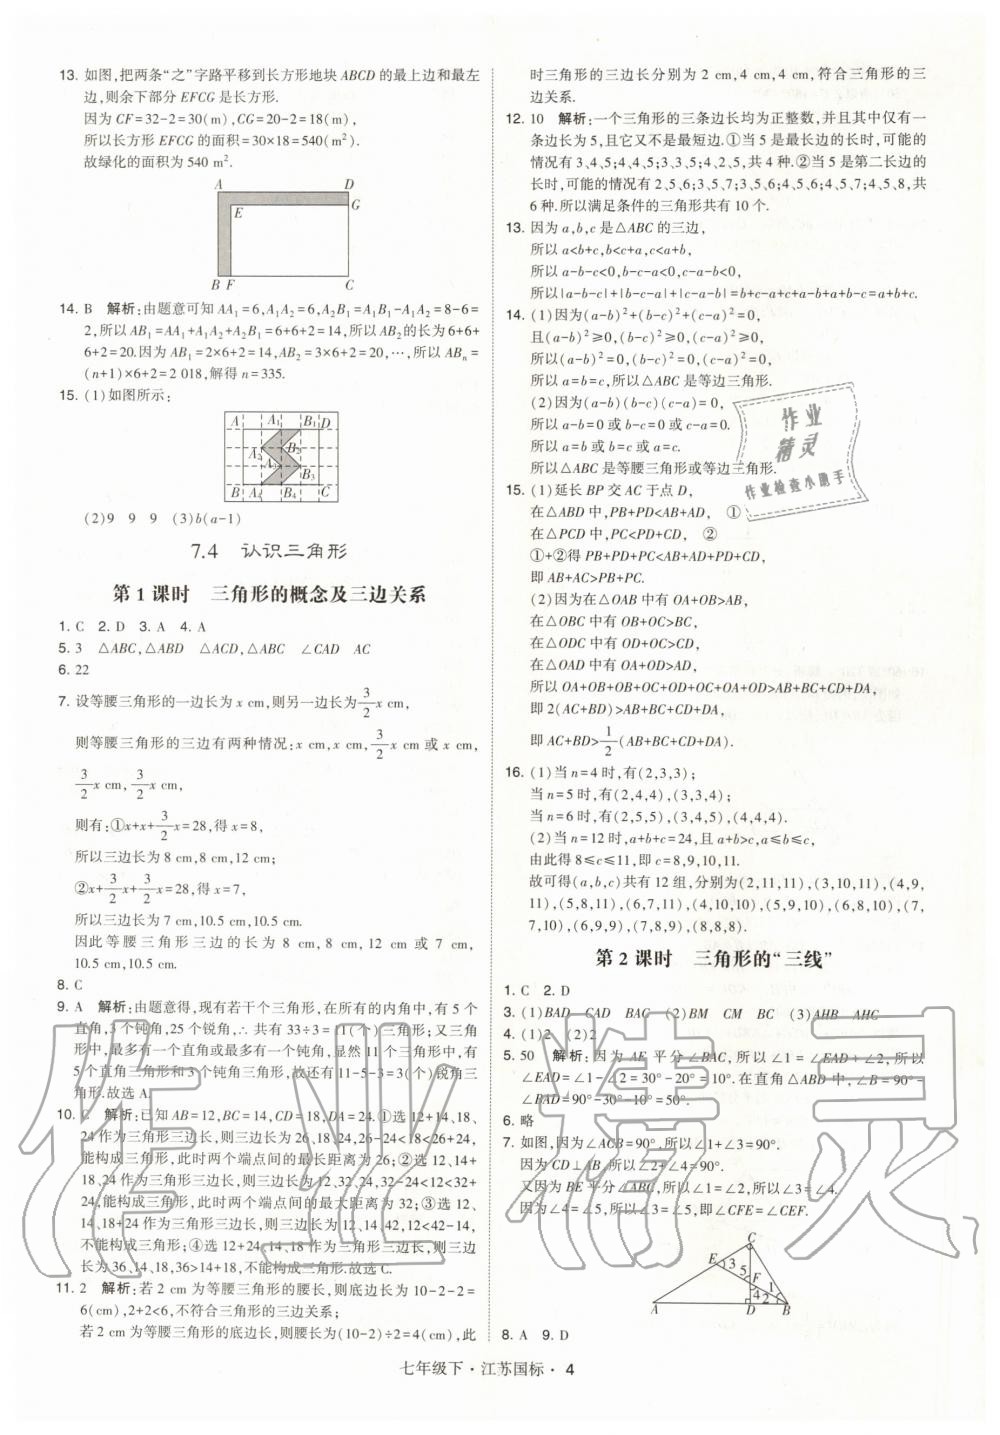 13. 如图,把两条“之”字路平移到长方形地块 ABCD 的最上边和最左
边,则余下部分 EFCG 是长方形.
因为 CF=32-2=30(m),CG=20-2=18(m),
所以长方形 EFCG 的面积=30×18=540(m²).
故绿化的面积为 540 m².
A D
E G
B F C
14. B 解析:由题意可知 AA₁=6,A₁A₂=6,A₂B₁=A₁B₁-A₁A₂=8-6=
2,所以 AB₁=AA₁+A₁A₂+A₂B₁=6+6+2=14,所以 AB₂的长为 6+6+
6+2=20.因为 AB₁=2×6+2=14,AB₂=3×6+2=20,…,所以 ABₙ=
(n+1)×6+2=2 018,解得 n=335.
15. (1)如图所示:
A A₁ B₁ D
A₂ B₂
B₃
B A₄ B₄ C
(2)9 9 9 (3)b(a-1)
7.4 认识三角形
第 1 课时 三角形的概念及三边关系
1. C 2. D 3. A 4. A
5. 3 △ABC,△ABD △ACD,△ABC ∠CAD AC
6. 22
7. 设等腰三角形的一边长为 x cm,则另一边长为3/2 x cm,
则等腰三角形的三边有两种情况:x cm,x cm,3/2 x cm 或 x cm,
3/2 x cm,3/2 x cm,
则有:①x+x+3/2 x=28,得 x=8,
所以三边长为 8 cm,8 cm,12 cm;
②x+3/2 x+3/2 x=28,得 x=7,
所以三边长为 7 cm,10.5 cm,10.5 cm.
因此等腰三角形三边的长为 8 cm, 8 cm, 12 cm 或 7 cm,
10.5 cm,10.5 cm.
8. C
9. A 解析:由题意得,现有若干个三角形,在所有的内角中,有 5 个
直角,3 个钝角,25 个锐角,∴共有 33÷3=11(个)三角形;又三角
形中,最多有一个直角或最多有一个钝角,显然 11 个三角形中,有
5 个直角三角形和 3 个钝角三角形,故还有 11-5-3=3(个)锐角三
角形.故选 A.
10. C 解析:已知 AB=12,BC=14,CD=18,DA=24.①选 12+14、18、
24 作为三角形三边长,则三边长为 26、18、24,26-24<18<26+24,
能构成三角形,此时两个端点间的最长距离为 26;②选 12、14+
18、24 作为三角形三边长,则三边长为 12、32、24,32-24<12<32+
24,能构成三角形,此时两个端点间的最大距离为 32;③选 12、
14、18+24 作为三角形三边长,则三边长为 12、14、42,12<42-14,
不能构成三角形;④选 12+24、14、18 作为三角形三边长,则三边
长为 36、14、18,36>14+18,不能构成三角形.故选 C.
11. 2 解析:若 2 cm 为等腰三角形的腰长,则底边长为 10-2-2=
6(cm),2+2<6,不符合三角形的三边关系;
若 2 cm 为等腰三角形的底边长,则腰长为(10-2)÷2=4(cm),此
时三角形的三边长分别为 2 cm,4 cm,4 cm,符合三角形的三
边关系.
12. 10 解析:一个三角形的三条边长均为正整数,并且其中仅有一
条边长为 5,且它又不是最短边.①当 5 是最长边的长时,可能的
情况有 3、4、5;4、4、5;3、3、5;4、2、5,共 4 种.②当 5 是第二长边的
长时,可能的情况有 2、5、6;3、5、7;3、5、6;4、5、6;4、5、7;4、5、8,共
6 种.所以满足条件的三角形共有 10 个.
13. 因为 a,b,c 是△ABC 的三边,
所以 a<b+c,b<c+a,c<a+b,
所以 a-b-c<0,b-c-a<0,c-a-b<0,
所以|a-b-c|+|b-c-a|+|c-a-b|=b+c-a+c+a-b+a+b-c=a+b+c.
14. (1)因为(a-b)²+(b-c)²+(c-a)²=0,
且(a-b)²≥0,(b-c)²≥0,(c-a)²≥0,
所以(a-b)²=0,(b-c)²=0,(c-a)²=0,
所以 a=b=c,所以△ABC 是等边三角形.
(2)因为(a-b)(b-c)(c-a)=0,
所以 a-b=0 或 b-c=0 或 c-a=0,
所以 a=b 或 b=c 或 a=c.
所以△ABC 是等腰三角形或等边三角形.
15. (1)延长 BP 交 AC 于点 D,
在△ABD 中,PB+PD<AB+AD, ①
在△PCD 中,PC<PD+CD, ②
①+②得 PB+PD+PC<AB+AD+PD+CD,
即 AB+AC>PB+PC.
(2)因为在△OAB 中有 OA+OB>AB,
在△OBC 中有 OB+OC>BC,
在△ODC 中有 OD+OC>CD,
在△OAD 中有 OA+OD>AD,
所以 OA+OB+OB+OC+OD+OC+OA+OD>AB+BC+CD+DA,
即 2(AC+BD)>AB+BC+CD+DA,
即 AC+BD>1/2(AB+BC+CD+DA).
16. (1)当 n=4 时,有(2,3,3);
当 n=5 时,有(2,4,4),(3,3,4);
当 n=6 时,有(2,5,5),(3,4,5),(4,4,4).
(2)当 n=12 时,a+b+c=24,且 a+b>c,a≤b≤c,
由此得 8≤c≤11,即 c=8,9,10,11.
故可得(a,b,c)共有 12 组,分别为(2,11,11),(3,10,11),(4,9,
11),(5,8,11),(6,7,11),(4,10,10),(5,9,10),(6,8,10),(7,
7,10),(6,9,9),(7,8,9),(8,8,8).
第 2 课时 三角形的“三线”
1. C 2. D
3. (1)BAD CAD BAC (2)BM CM BC (3)AHB AHC
4. (1)2 (2)2
5. 50 解析:因为 AE 平分∠BAC,所以∠1=∠EAD+∠2,所以
∠EAD=∠1-∠2=30°-20°=10°.在直角△ABD 中,∠B=90°-
∠BAD=90°-30°-10°=50°.
6. 略
7. 如图,因为∠ACB=90°,所以∠1+∠3=90°.
因为 CD⊥AB,所以∠2+∠4=90°.
又因为 BE 平分∠ABC,所以∠1=∠2,所以∠3=∠4.
因为∠4=∠5,所以∠3=∠5,即∠CFE=∠CEF.
C
E 3 5 F
4 2 1
A D B
8. A 9. D
作业
精灵
作业检查小助手
作业精灵
七年级下·江苏国标·4